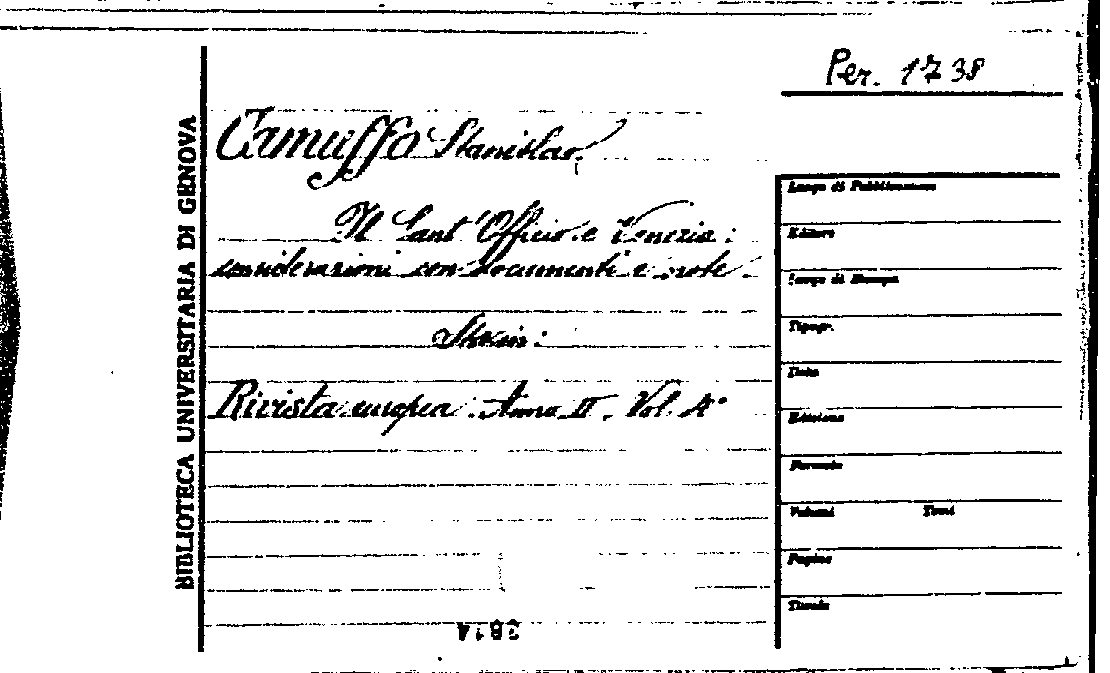 Per. 1738
BIBLIOTECA UNIVERSITARIA DI GENOVA
Camuffo Stanislao.
Il Sant'Officio e Venezia:
considerazioni con documenti e note.
Sta in:
Rivista europea. Anno II. Vol. 4°
Luogo di Pubblicazione
Editore
Luogo di Stampa
Tipogr.
Data
Edizione
Formato
Volumi Tomi
Pagine
Tavole